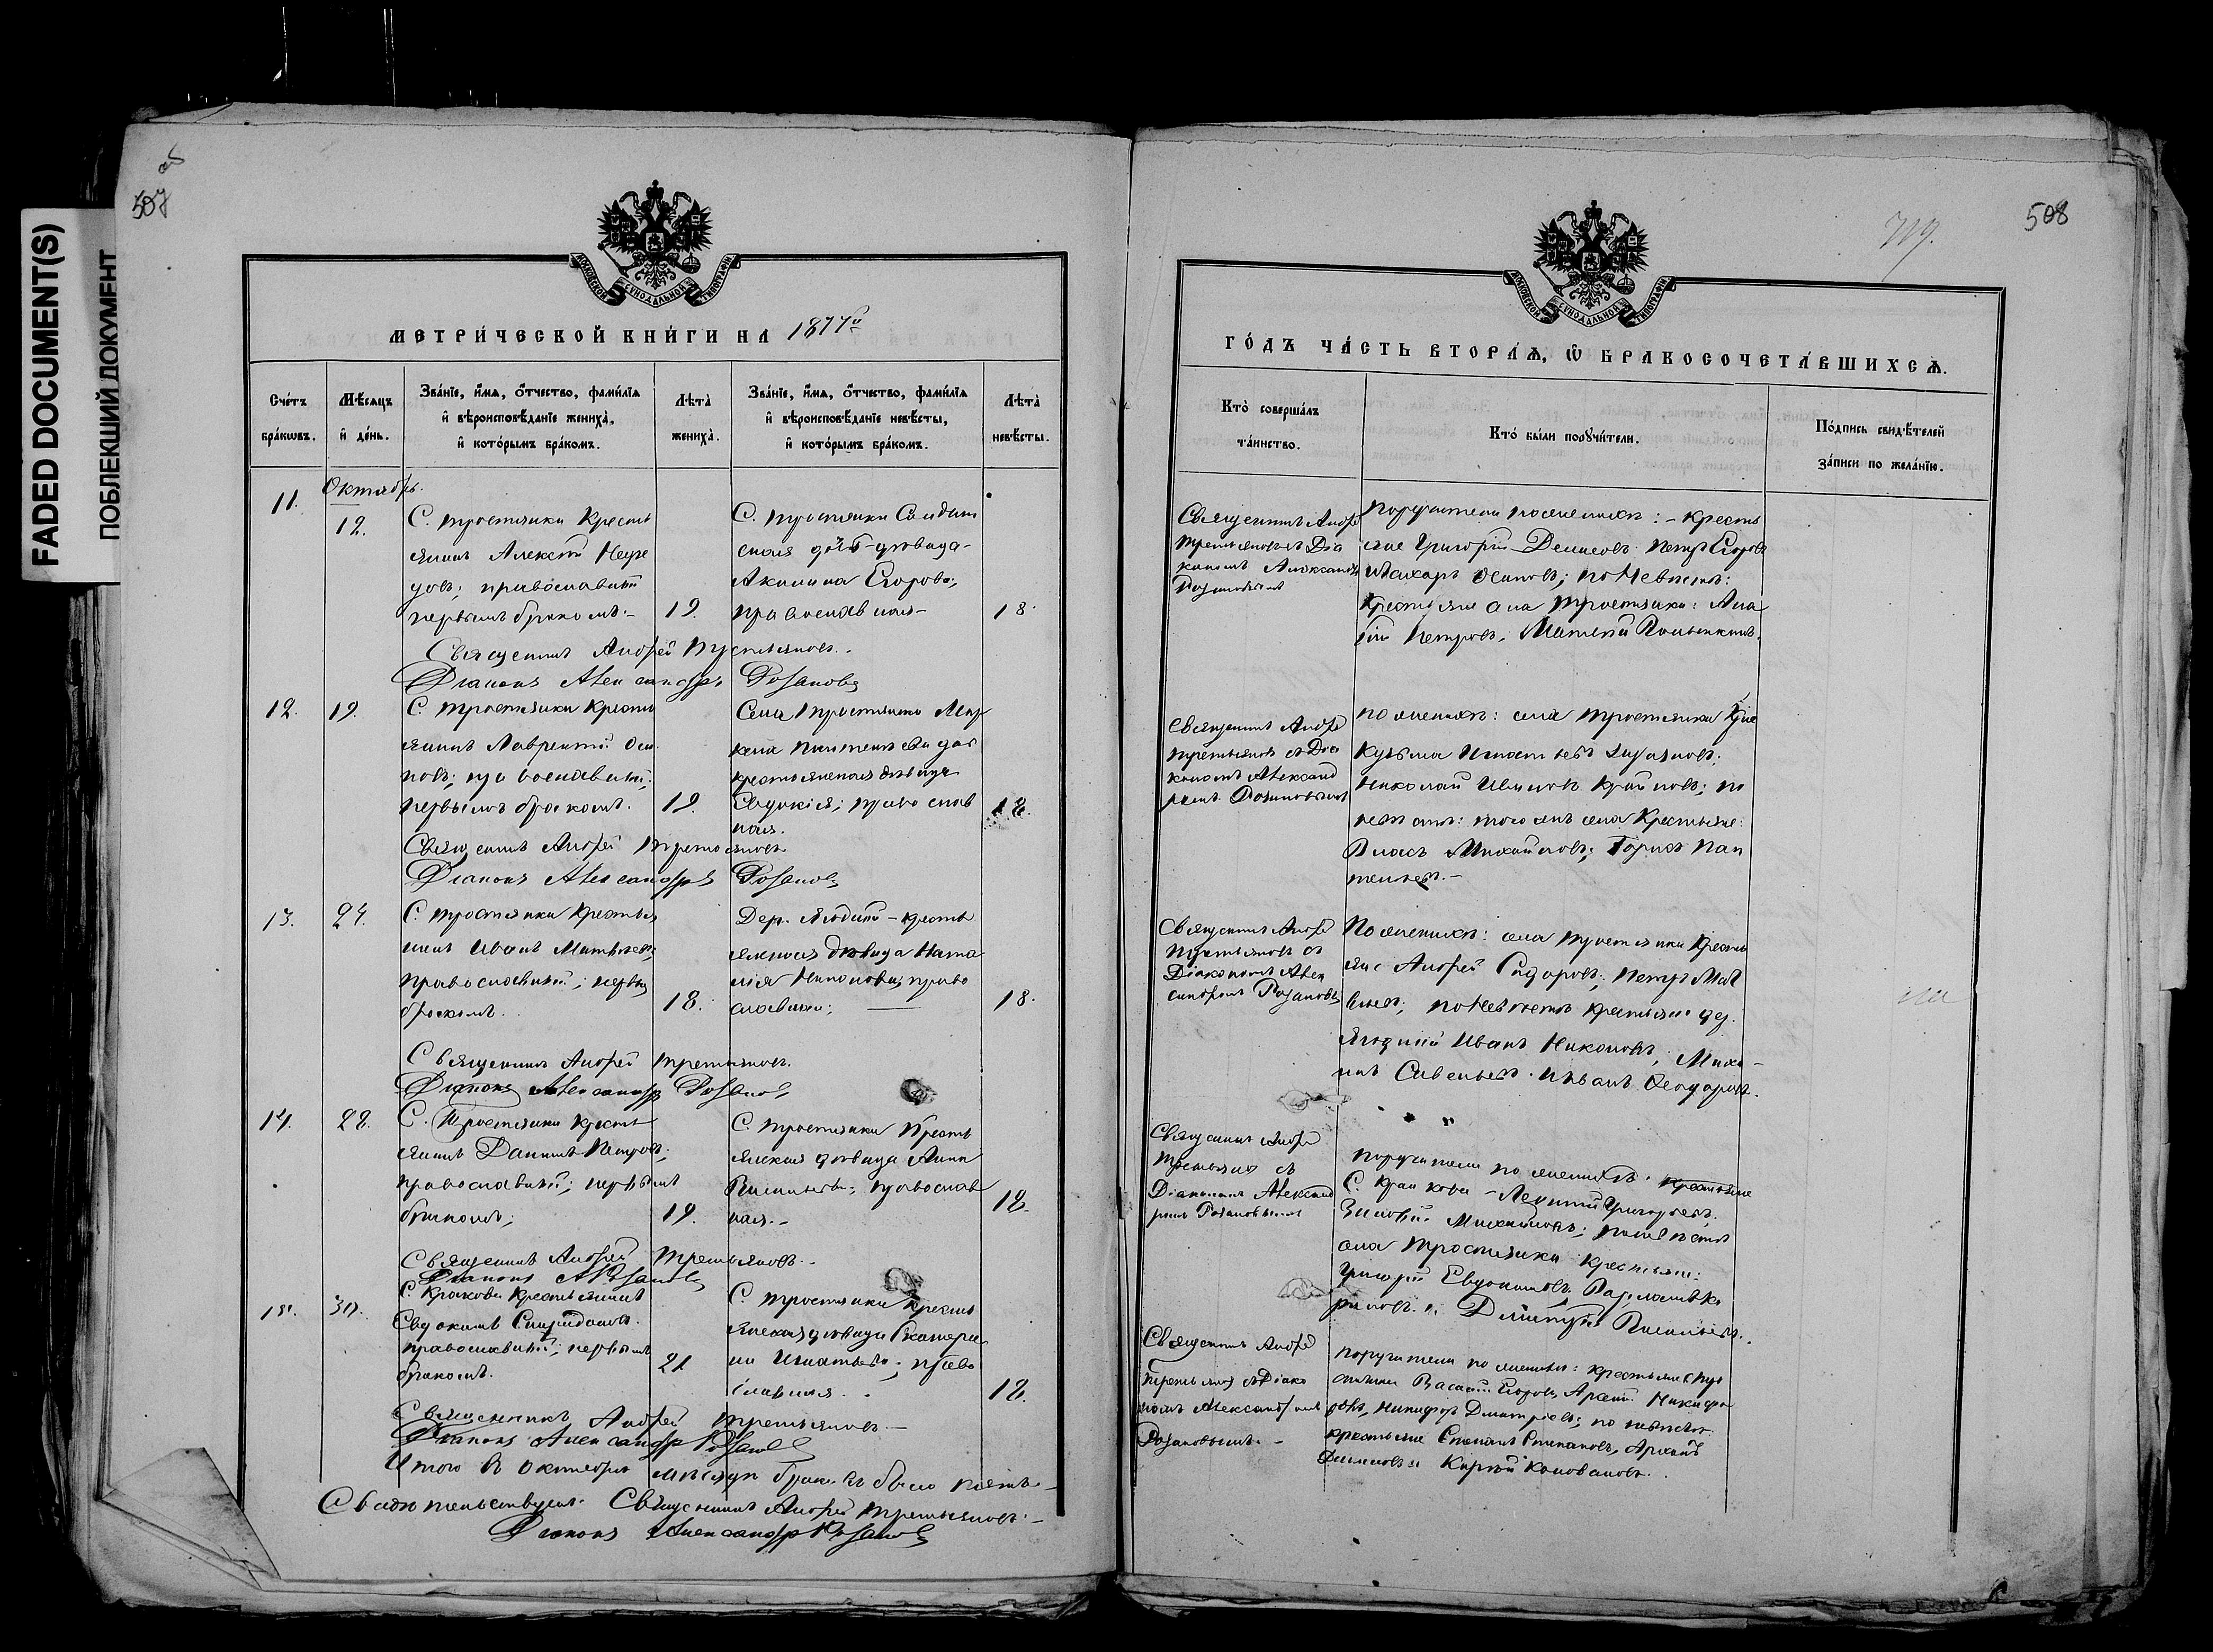 FADED DOCUMENT(S)
ПОБЛЕКШИЙ ДОКУМЕНТ
507
об
МОСКОВСКОЙ СѴНОДАЛЬНОЙ ТИПОГРАФІИ
МЕТРИ́ЧЕСКОЙ КНИ́ГИ НА 1877й
Сче́тъ бра́кωвъ.
Мѣ́сяцъ и҆ де́нь.
Зва́нїе, и҆́мѧ, ѻ҆́тчество, фамилїѧ и҆ вѣроисповѣ́данїе женихà, и҆ кото́рымъ бра́комъ.
Лѣтà женихà.
Зва́нїе, и҆́мѧ, ѻ҆́тчество, фамилїѧ и҆ вѣроисповѣ́данїе невѣ́сты, и҆ кото́рымъ бра́комъ.
Лѣтà невѣ́сты.
Октябрь.
11.
12.
С. Тростянки Кресть
янинъ Алексѣй
православный
первымъ бракомъ.
19.
С. Тростянки Солдат
ская дочь-дѣвица
Акилина Егорова;
православная
18.
Священникъ Андрей Третьяковъ.
Діаконъ Александръ Розановъ
12.
19.
С. Тростянки Кресть
янинъ Лаврентій Оси
повъ; православный;
первымъ бракомъ.
19.
Села Тростянки
крестьянская дѣвица
Евдокія; православ
ная.
18.
Священникъ Андрей Третьяковъ
Діаконъ Александръ Розановъ
13.
24.
С. Тростянки Крестья
нинъ Иванъ Матвѣевъ;
православный; первы
бракомъ.
18.
Дер. Ягодной - кресть
янская дѣвица Ната
лія Никонова; право
славная;
18.
Священникъ Андрей Третьяковъ.
Діаконъ Александръ Розановъ
14.
28.
С. Тростянки Кресть
янинъ Даніилъ Петровъ;
православный; первымъ
бракомъ;
19.
С. Тростянки Кресть
янская дѣвица Анна
Васильева; православ
ная.-
18.
Священникъ Андрей Третьяковъ.
Діаконъ А Розановъ
15.
30.
С. Кракова Крестьянинъ
Евдокимъ Спиридоновъ
православный; первымъ
бракомъ.
21
С. Тростянки Кресть
янская дѣвица Екатери
на Игнатьева; право
славная.
18.
Священникъ Андрей Третьяковъ.-
Діаконъ Александръ Розановъ
Итого въ Октябрѣ мѣсяцѣ браковъ было пять.
Свидѣтельствуемъ: Священникъ Андрей Третьяковъ.-
Діаконъ Александръ Розановъ
508
719.
МОСКОВСКОЙ СѴНОДАЛЬНОЙ ТИПОГРАФІИ
ГО́ДЪ ЧА́СТЬ ВТОРА́Ѧ, Ѽ БРАКОСОЧЕТА́ВШИХСѦ.
Кто̀ соверша́лъ та́инство.
Кто́ бы́ли порꙋчи́тели.
По́дпись свидѣ́телей за́писи по жела́нїю.
Священникъ Андрей
Третьяковъ съ Діа
кономъ Александр
Розановымъ
Поручители по женихѣ: - Кресть
яне Григорій Денисовъ. Петръ Егоровъ
Захаръ Осиповъ; по Невѣстѣ:
Крестьяне села Тростянки:
Петровъ, Матвей
Священникъ Андрей
Третьяковъ съ Діа
кономъ Александ
ромъ Розановымъ
По женихѣ: села Тростянки Кре
Кузьма Игнатьевъ
Николай Ивановъ; по
невѣстѣ: того же села Крестьяне:
Власъ Михайловъ; Борисъ Пан
телеевъ.-
Священникъ Андрей
Третьяковъ съ
Діакономъ Алек
сандромъ Розановы
По женихѣ: села Тростянки Кресть
яне Андрей Сидоровъ; Петръ Мат
вѣевъ; по Невѣстѣ Крестьяне де.
Ягодной Иванъ Никоновъ, Миха
илъ Савельевъ. Иванъ Ѳеодоровъ.
Священникъ Андрей
Третьяковъ съ
Діакономъ Александ
ромъ Розановымъ
Поручители по женихѣ: крестьяне
С. Кракова - Леонтій Григорьевъ,
Зиновій Михайловъ; по невѣстѣ
села Тростянки Крестьяне:
Григорій Евдокимовъ
и Димитрій Васильевъ.
Священникъ Андрей
Третьяковъ съ Діако
номъ Александромъ
Розановымъ.-
Поручители по женихѣ: крестьяне с Тро
стянки Василій Егоровъ, Никифо
ровъ, Никифоръ Димитріевъ; по невѣстѣ:
крестьяне Степанъ Степановъ, Архипъ